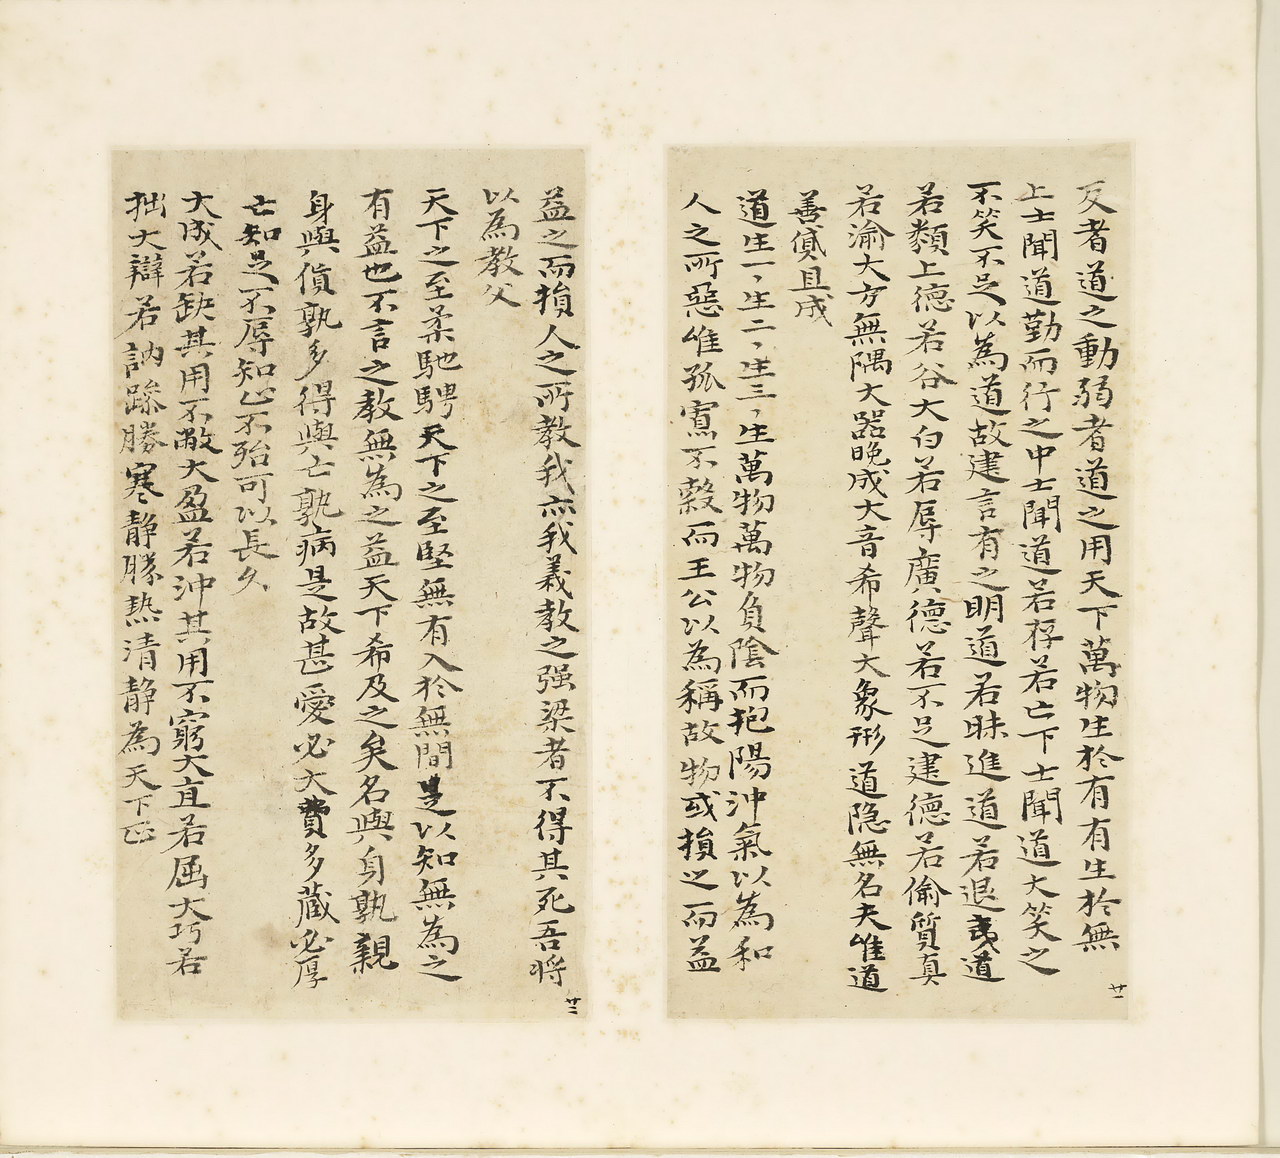 反者道之動弱者道之用天下萬物生於有有生於無
上士聞道勤而行之中士聞道若存若亡下士聞道大笑之
不笑不足以為道故建言有之明道若昧進道若退夷道
若纇上德若谷大白若辱廣德若不足建德若偷質真
若渝大方無隅大器晚成大音希聲大象無形道隱無名夫唯道
善貸且成
道生一、生二、生三、生萬物萬物負陰而抱陽沖氣以為和
人之所惡唯孤寡不穀而王公以為稱故物或損之而益
廿一
益之而損人之所教我亦我義教之强梁者不得其死吾將
以為教父
天下之至柔馳騁天下之至堅無有入於無間是以知無為之
有益也不言之教無為之益天下希及之矣名與身孰親
身與貨孰多得與亡孰病是故甚愛必大費多藏必厚
亡知足不辱知止不殆可以長久
大成若缺其用不敝大盈若沖其用不窮大直若屈大巧若
拙大辯若訥躁勝寒靜勝熱清靜為天下正
廿二